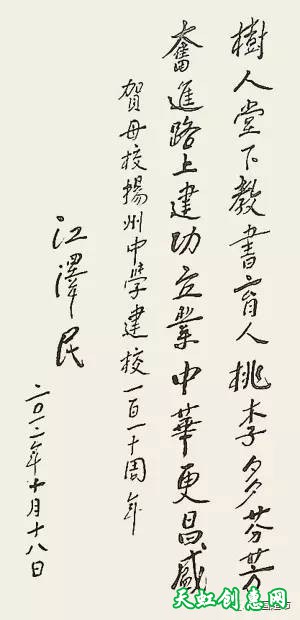 樹人堂下教書育人桃李多芬芳
奮進路上建功立業中華更昌盛
賀母校揚州中學建校一百一十周年
江澤民
二〇一二年十月十八日
天虹创惠网